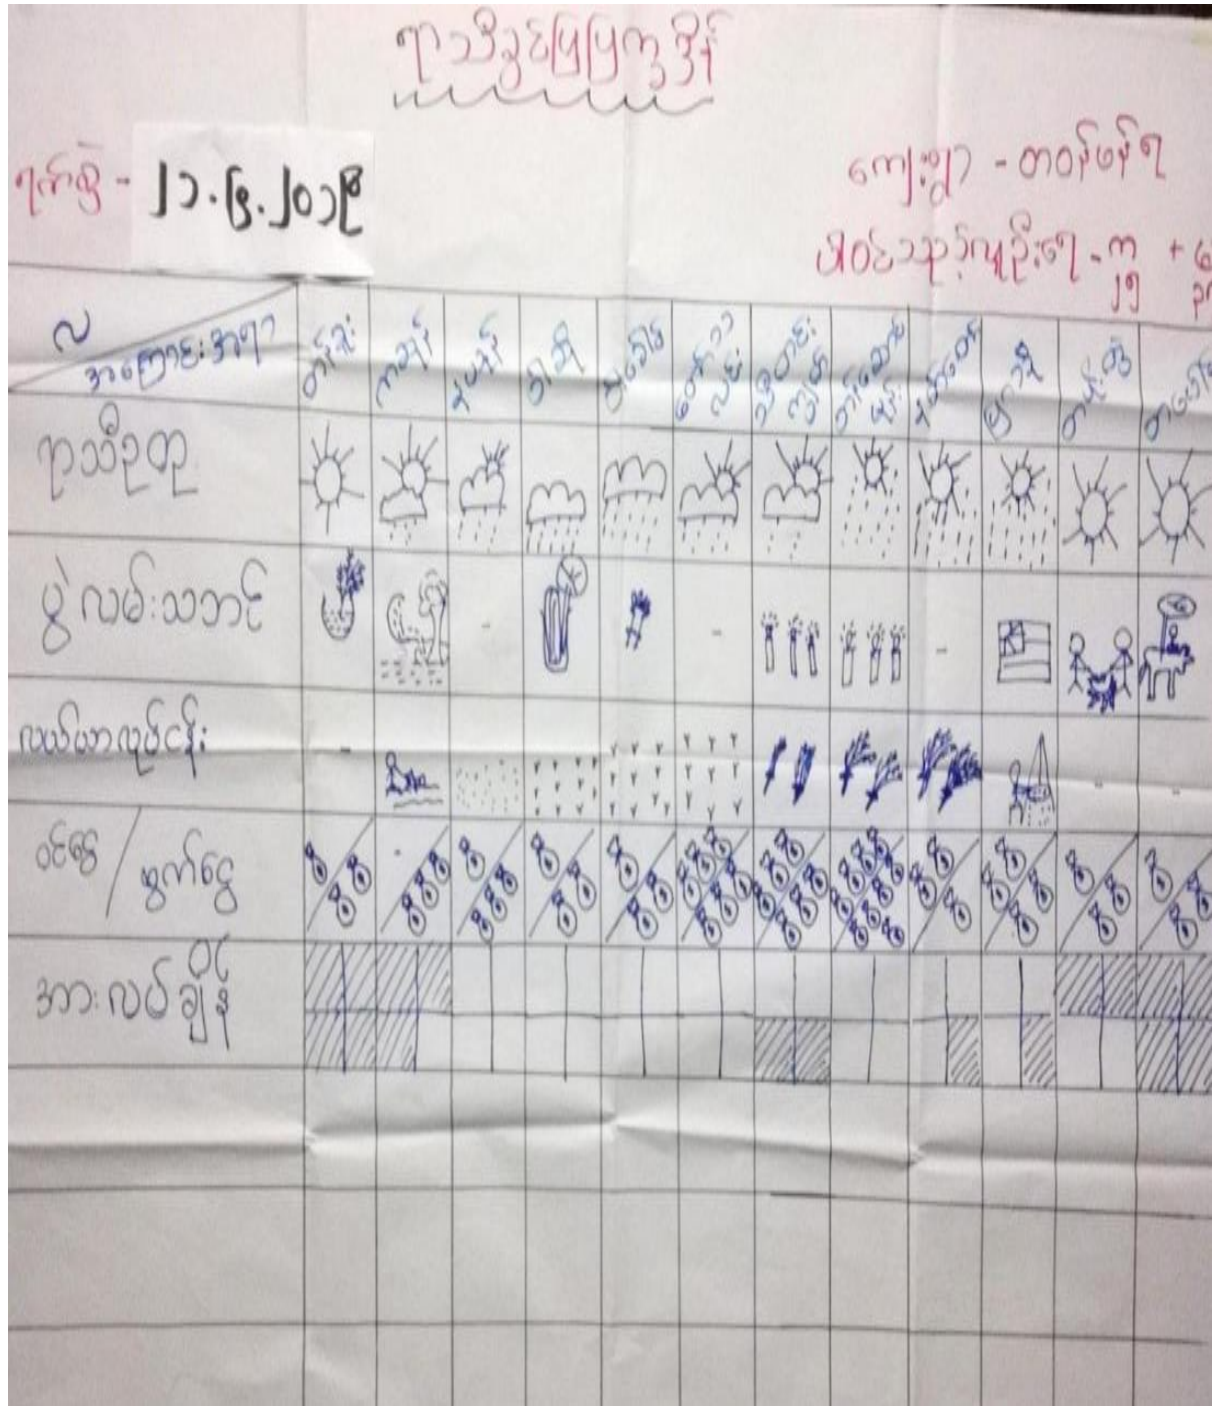 ရာသီခွင်ပြပြက္ခဒိန်
ရက်စွဲ - ၂၁.၆.၂၀၁၉
ကျေးရွာ - တဝန်ဖန်ရ
ပါဝင်သည့်လူဦးရေ - ကျ +
၂၅
လ
အကြောင်းအရာ
တန်ခူး ကဆုန် နယုန် ဝါဆို ဝါခေါင် တော်သလင်း သီတင်းကျွတ် တန်ဆောင်မုန်း နတ်တော် ပြာသို တပို့တွဲ
ရာသီဥတု
ပွဲလမ်းသဘင်
လယ်ယာလုပ်ငန်း
ဝင်ငွေ / ထွက်ငွေ
အားလပ်ချိန်